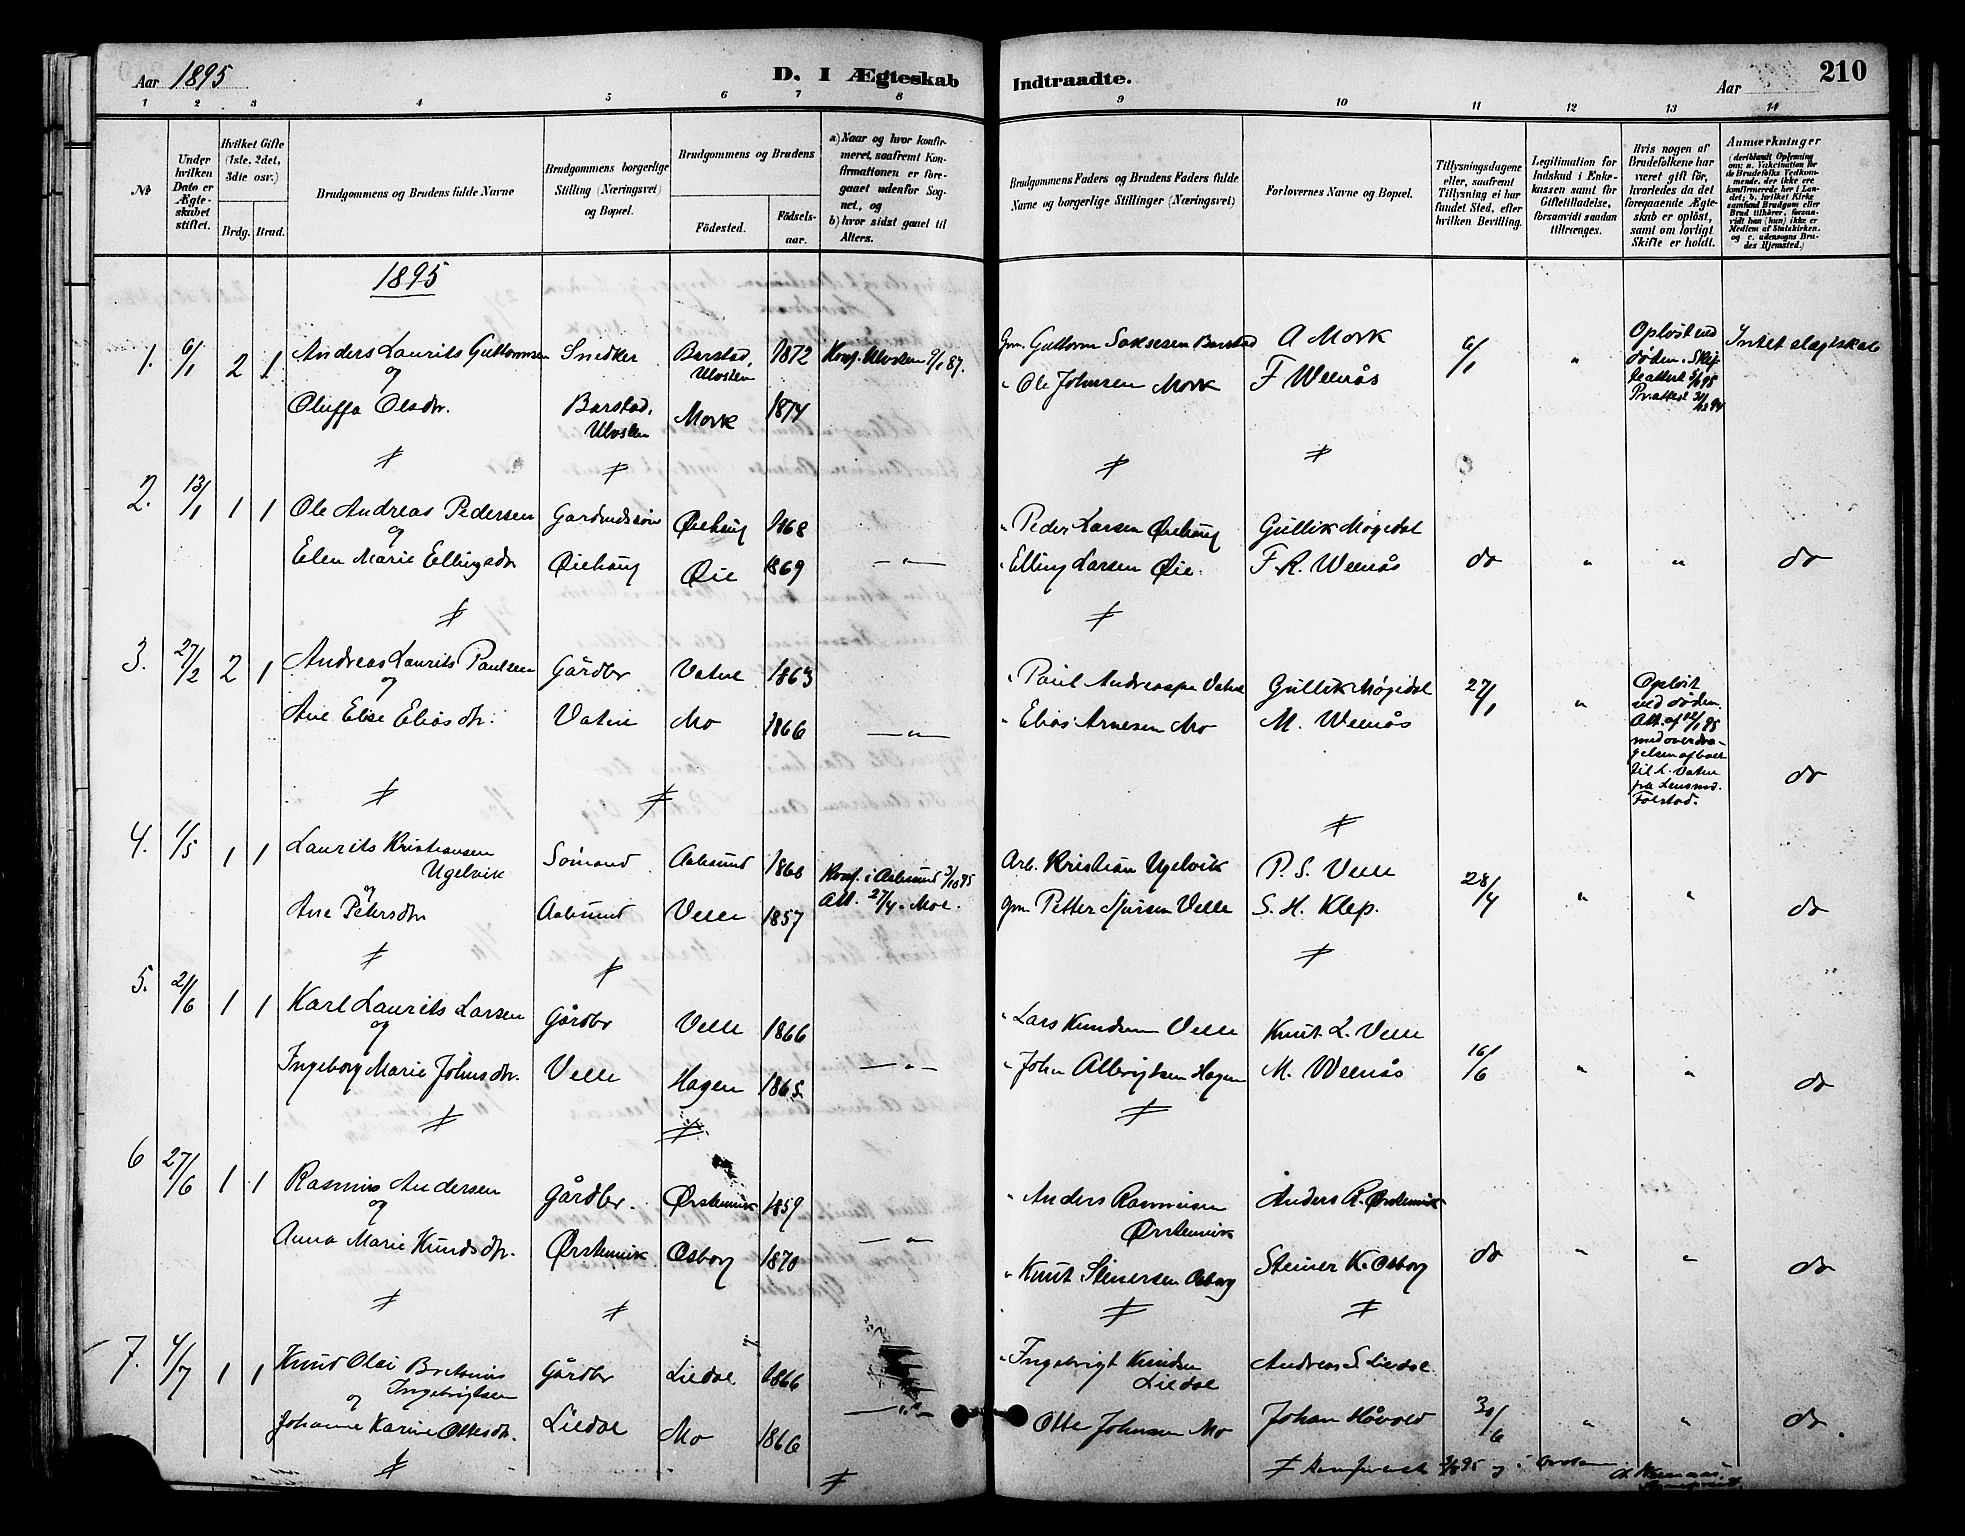 Aar 1895
D. I Ægteskab
Indtraadte.
Aar
210
1 2 3 4 5 6 7 8 9 10 11 12 13 14
No
Under hvilken Dato er Ægteskabet stiftet.
Hvilket Gifte (1ste, 2det, 3die osv.)
Brdg. Brud.
Brudgommens og Brudens fulde Navne
Brudgommens borgerlige Stilling (Næringsvei) og Bopæl.
Brudgommens og Brudens
Fødested.
Fødsels-aar.
a) Naar og hvor konfirmeret, saafremt Konfirmationen er foregaaet udenfor Sognet, og
b) hvor sidst gaaet til Alters.
Brudgommens Faders og Brudens Faders fulde Navne og borgerlige Stillinger (Næringsvei)
Forlovernes Navne og Bopæl.
Tillysningsdagene eller, saafremt Tillysning ei har fundet Sted, efter hvilken Bevilling.
Legitimation for Indskud i Enkekassen samt for Giftetilladelse, forsaavidt saadan tiltrænges.
Hvis nogen af Brudefolkene har været gift før, hvorledes da det foregaaende Ægteskab er opløst, samt om lovligt Skifte er holdt.
Anmærkninger
(deriblandt Oplysning om: a. Vakcination for de Brudefolks Vedkommende, der ikke ere konfirmerede her i Landet; b. hvilket Kirkesamfund Brudgom eller Brud tilhører, forsaavidt han (hun) ikke er Medlem af Statskirken. og c. udensogns Brudes Hjemsted.)
1895
1. 6/1 2 1 Anders Laurits Guttormsen Snedker Barstad, Ulvsten 1872 Konf. Ulvsten 9/1 87. Gm. Guttorm Saksesen Barstad A Mork 6/1 " Opløst ved døden. Intet slægtskab
og
Oluffa Olsdtr. Barstad, Ulvsten Mork 1874 " Ole Johnsen Mork F Weenås
2. 13/1 1 1 Ole Andreas Pedersen Gardmdssøn Øiehaug 1868 " Peder Larsen Øiehaug Gullik Møgedal
og
Elen Marie Ellingsdtr Øiehaug Øie 1869 — " — " Elling Larsen Øie. F. R. Weenås do " " do
3. 27/2 2 1 Andreas Laurits Paulsen Gårdbr Vatne 1863 " Paul Andreassen Vatne Gullik Møgedal 27/1 " Opløst ved døden. Att. af 12/1 95
og
Ane Elise Eliasdtr. Vatne Mo 1866 — " — " Elias Arnesen Mo M. Weenås
til L. Vatne fra Lensmd. Folstad. do
4. 1/5 1 1 Laurits Kristiansen Ugelvik Sømand Aalesund 1860 Konf. i Aalesund Arb. Kristian Ugelvik P. S. Velle 28/4
og
Ane Petersdtr Aalesund Velle 1857 Att. 27/4. Moe. Gm. Petter Sjursen Velle S. H. Klep. " " do
5. 21/6 1 1 Karl Laurits Larsen Gårdbr Velle 1866 " Lars Knudsen Velle Knut L. Velle
og
Ingeborg Marie Johnsdtr. Velle Hagen 1865 — " — " John Albrigtsen Hagen M. Weenås 16/6 " " do
6 27/6 1 1 Rasmus Andersen Gårdbr. Ørstenvik 1859 " Anders Rasmussen Ørstenvik Anders R. Ørstenvik
og
Anna Marie Knudsdtr. Ørstenvik Osborg 1870 — " — " Knut Steinersen Osborg Steiner K. Osborg do " " do
7. 4/7 1 1 Knud Olai Bretenius Ingebrigtsen Gårdbr Liedal 1866 " Ingebrigt Knudsen Liedal Andreas S Liedal
og
Johanne Karine Ottesdtr. Liedal Mo 1866 — " — Otte Johnsen Mo Johan Håvold 30/6 " " do.